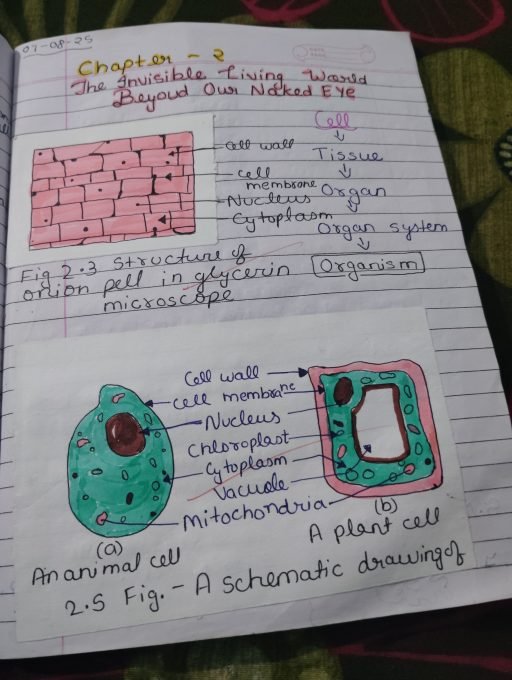 07-08-25
Chapter - 2
The Invisible Living World
Beyoud Our Naked EYe
Cell
Cell wall
Tissue
cell
membrane
Organ
Nucleus
Cytoplasm
Organ system
Organism
Fig 2.3 Structure of
onion pell in glycerin
microscope
Cell wall
Cell membrane
Nucleus
Chloroplast
Cytoplasm
Vacuole
Mitochondria
(a)
An animal cell
(b)
A plant cell
2.5 Fig. - A schematic drawing of